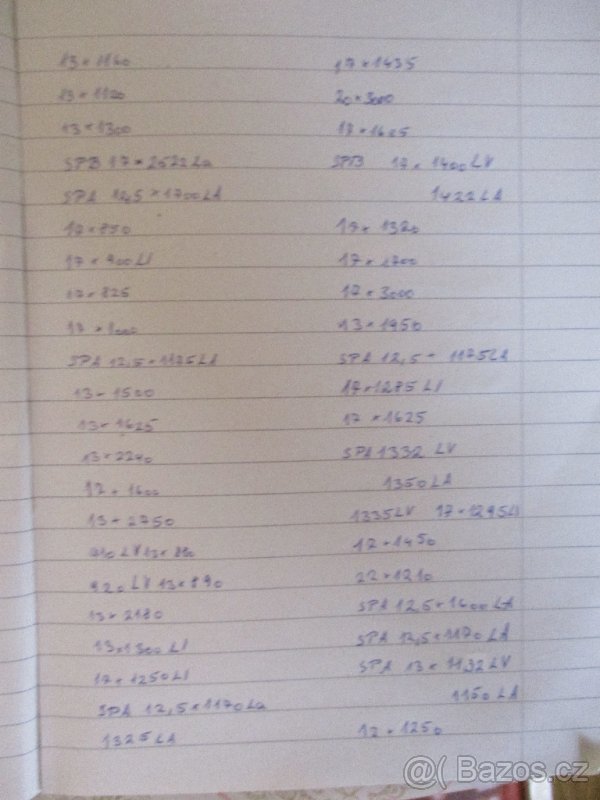 13 x 1140
13 x 1120
13 x 1300
SPB 17 x 2522 La
SPA 12,5 x 1700 LA
17 x 850
17 x 900 LI
17 x 825
17 x
SPA 12,5 x 1175 LA
13 x 1500
13 x 1625
13 x 2240
17 x 1600
13 x 2750
LV 13 x
920 LV 13 x 890
13 x 2180
13 x 1300 LI
17 x 1250 LI
SPA 12,5 x 1170 La
1325 LA
17 x 1435
20 x 3000
17 x 1625
SPB 17 x 1400 LV
1422 LA
17 x 1320
17 x 1700
17 x 3000
13 x 1950
SPA 12,5 - 1175 LA
17 x 1275 LI
17 x 1625
SPA 1332 LV
1350 LA
1335 LV 17 x 1295 LI
17 x 1450
22 x 1210
SPA 12,5 x 1600 LA
SPA 12,5 x 1170 LA
SPA 13 x 1132 LV
1150 LA
17 x 1250
@( Bazos.cz